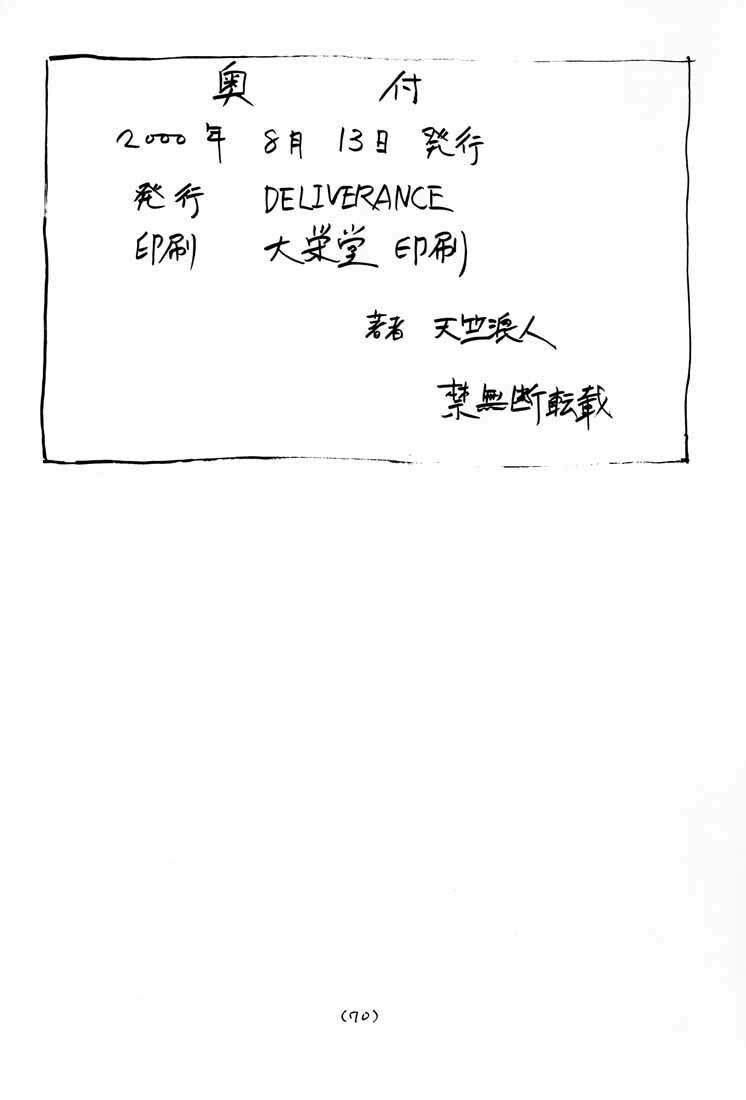 奥付
2000年 8月 13日 発行
発行 DELIVERANCE
印刷 大栄堂印刷
著者 天竺浪人
禁無断転載
(70)